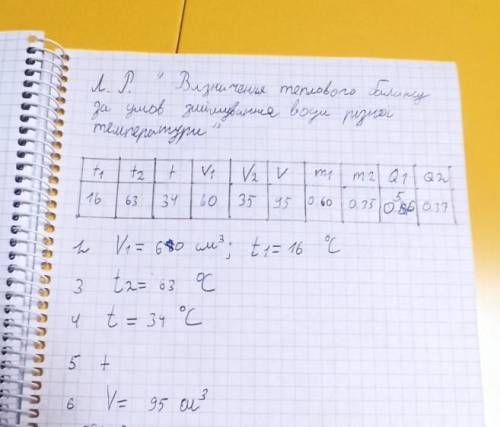 Л. Р. " Визначення теплового балансу
за умов змішування води різної
температури "
t1 t2 t V1 V2 V m1 m2 Q1 Q2
16 63 34 60 35 95 0.60 0.35 0.56 0.37
2 V1 = 60 см³; t1 = 16 °C
3 t2 = 63 °C
4 t = 34 °C
5 t
6 V = 95 см³